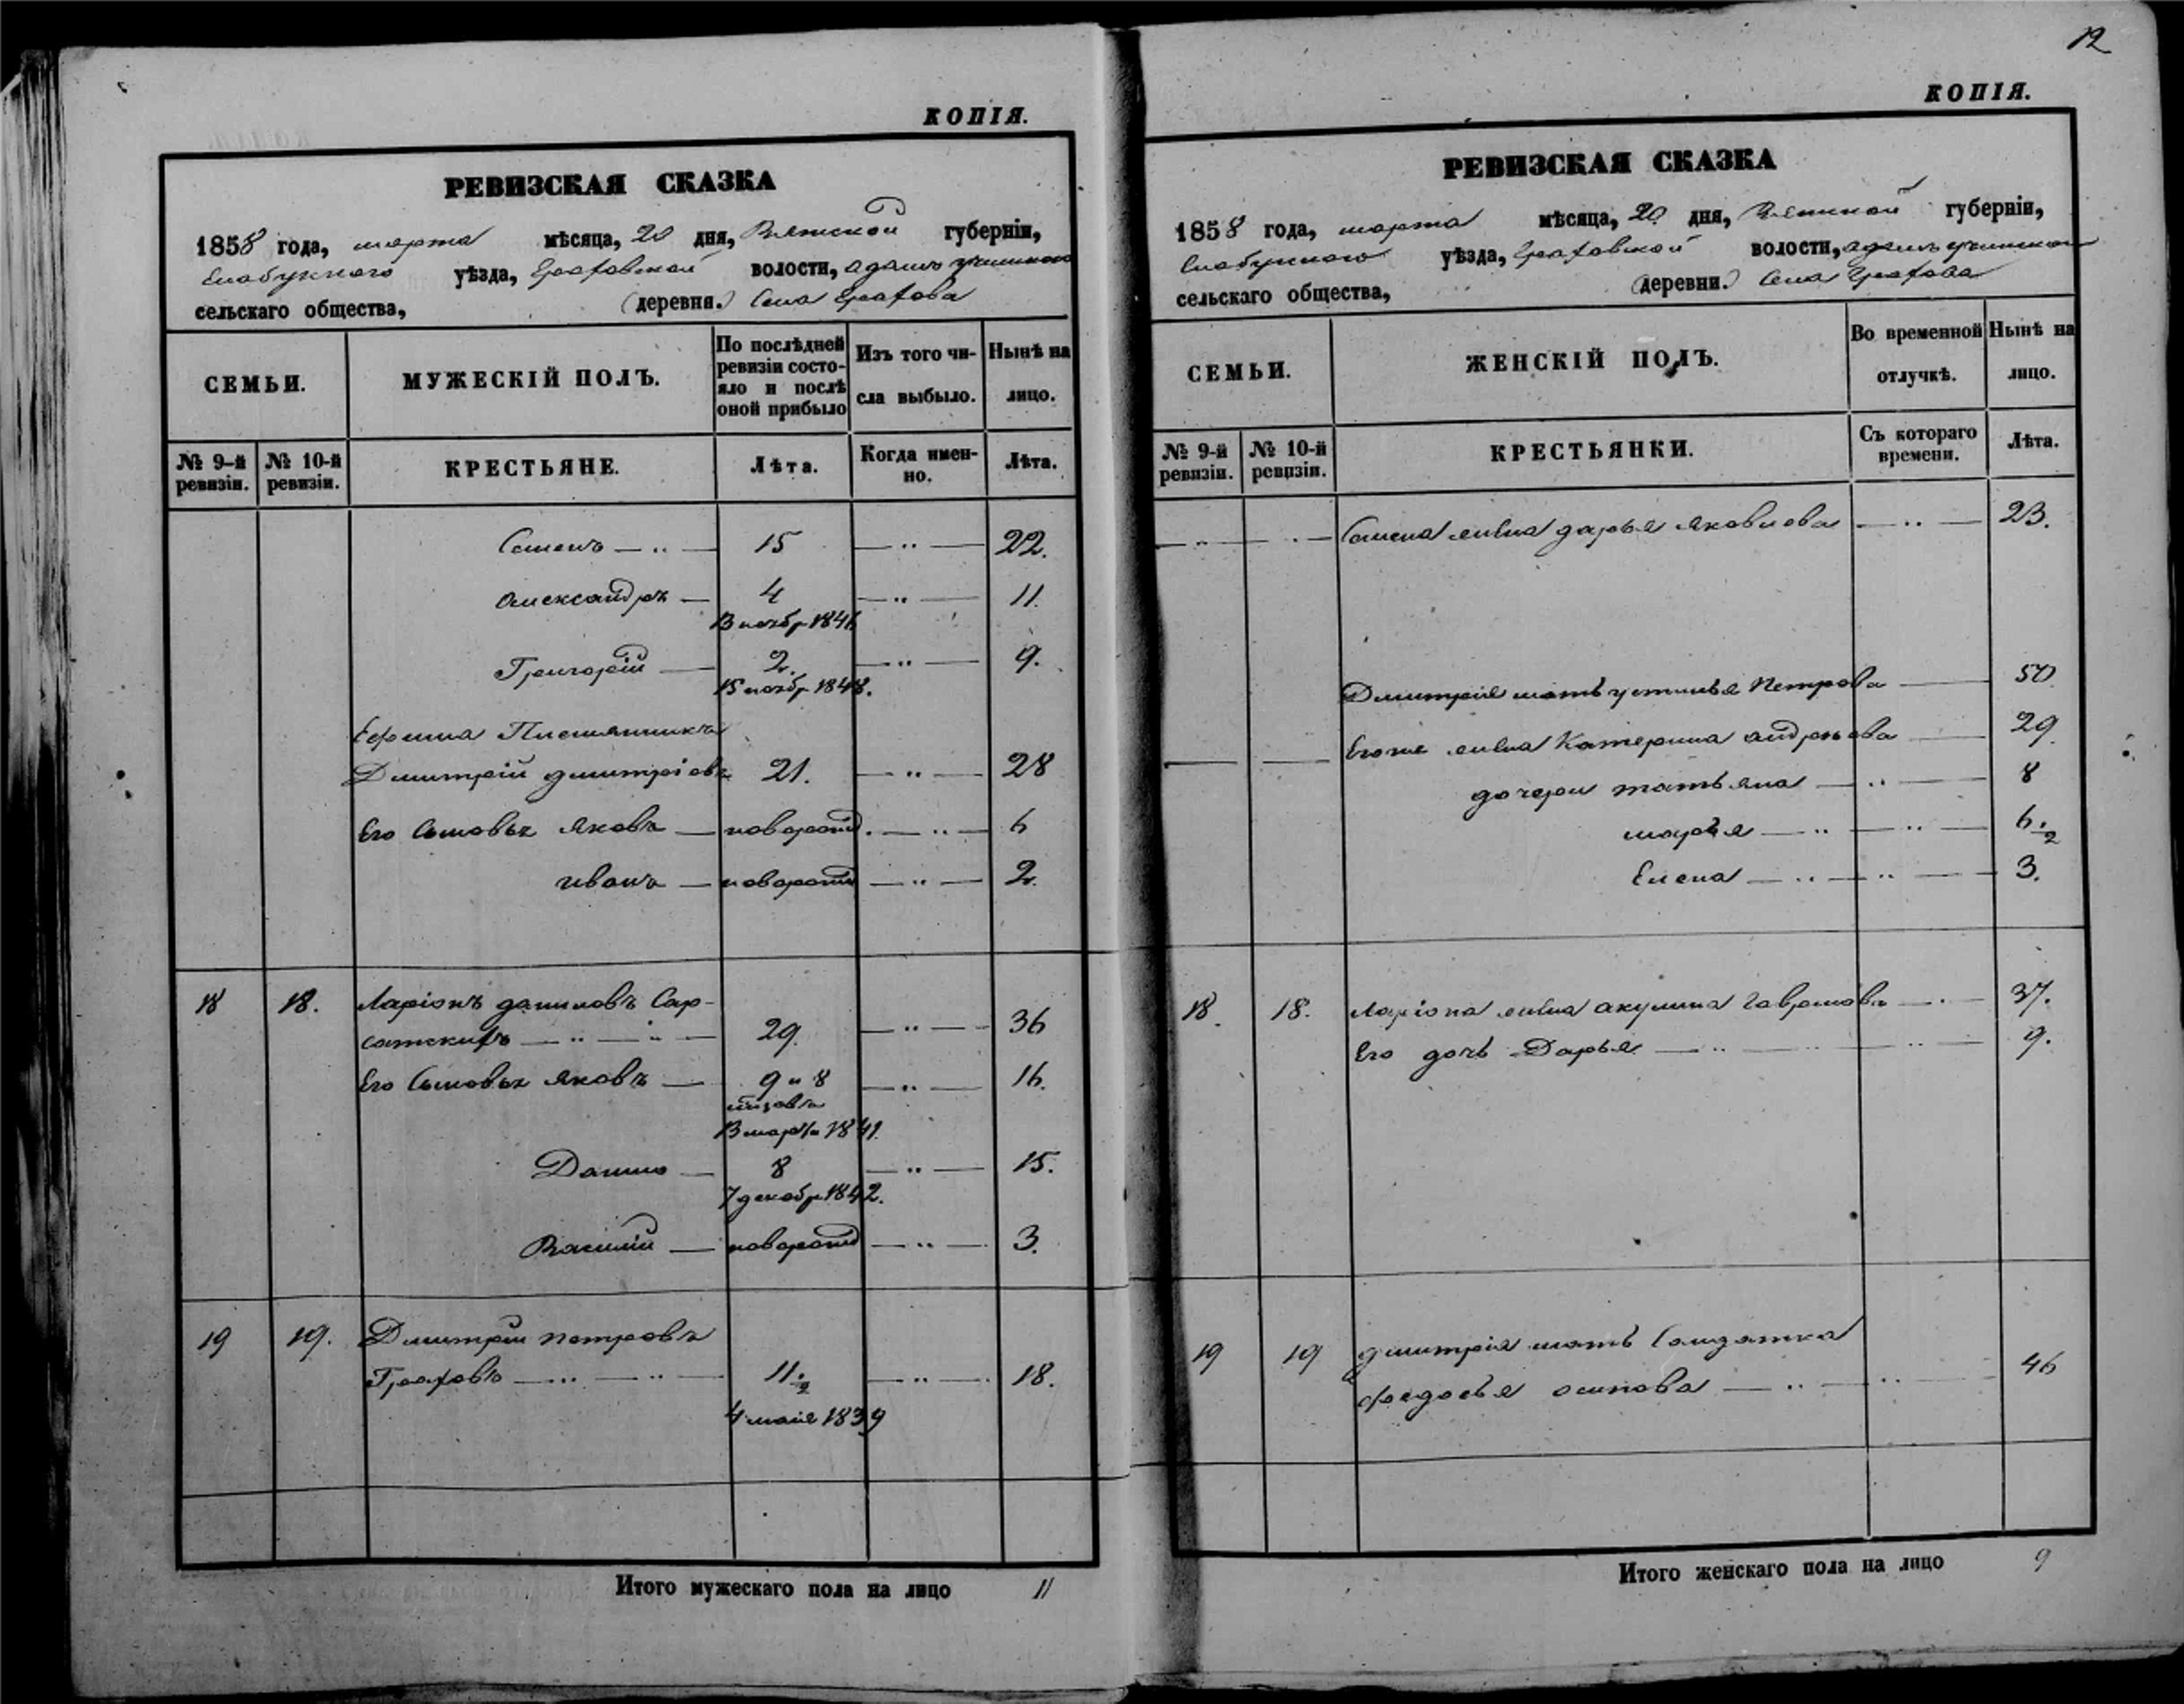 КОПІЯ.
РЕВИЗСКАЯ СКАЗКА
1858 года, марта мѣсяца, 20 дня, Вятской губерніи,
Елабужскаго уѣзда, Граховской волости,
сельскаго общества, (деревня.) Села Грахова
СЕМЬИ. МУЖЕСКІЙ ПОЛЪ. По послѣдней ревизіи состояло и послѣ оной прибыло Изъ того числа выбыло. Нынѣ на лицо.
№ 9-й ревизіи. № 10-й ревизіи. КРЕСТЬЯНЕ. Лѣта. Когда именно. Лѣта.
Семенъ — 15 — 22.
Александръ — 4 — 11.
13 ноябр 1846
Григорій — 2. — 9.
15 ноябр 1848.
Ефима Племянникъ
Дмитрій дмитріевъ 21. — 28
Его Сыновья яковъ — новорожд. — 6
иванъ — новорожд — 2.
18 18. Ларіонъ даниловъ Сар-
29. — 36
Его Сыновья яковъ — 9 и 8 — 16.
13 марта 1841.
Данило — 8 — 15.
7 декабр 1842.
Василій — новорожд — 3.
19 19. Дмитрій петровъ
Граховъ — 11½ — 18.
4 маія 1839
Итого мужескаго пола на лицо 11
12
КОПІЯ.
РЕВИЗСКАЯ СКАЗКА
1858 года, марта мѣсяца, 20 дня, Вятской губерніи,
Елабужскаго уѣзда, Граховской волости,
сельскаго общества, (деревни.) Села Грахова
СЕМЬИ. ЖЕНСКІЙ ПОЛЪ. Во временной отлучкѣ. Нынѣ на лицо.
№ 9-й ревизіи. № 10-й ревизіи. КРЕСТЬЯНКИ. Съ котораго времени. Лѣта.
Семена жена дарья яковлева — 23.
Дмитрія мать устинья Петрова — 50
Егоже жена Катерина андрѣева — 29.
дочери татьяна — 8
марья — 6½
Елена — 3.
18. 18. Ларіона жена акулина Гаврилова — 37.
Его дочь Дарья — 9.
19 19 дмитрія мать Солдатка
федосья осипова — 46
Итого женскаго пола на лицо 9